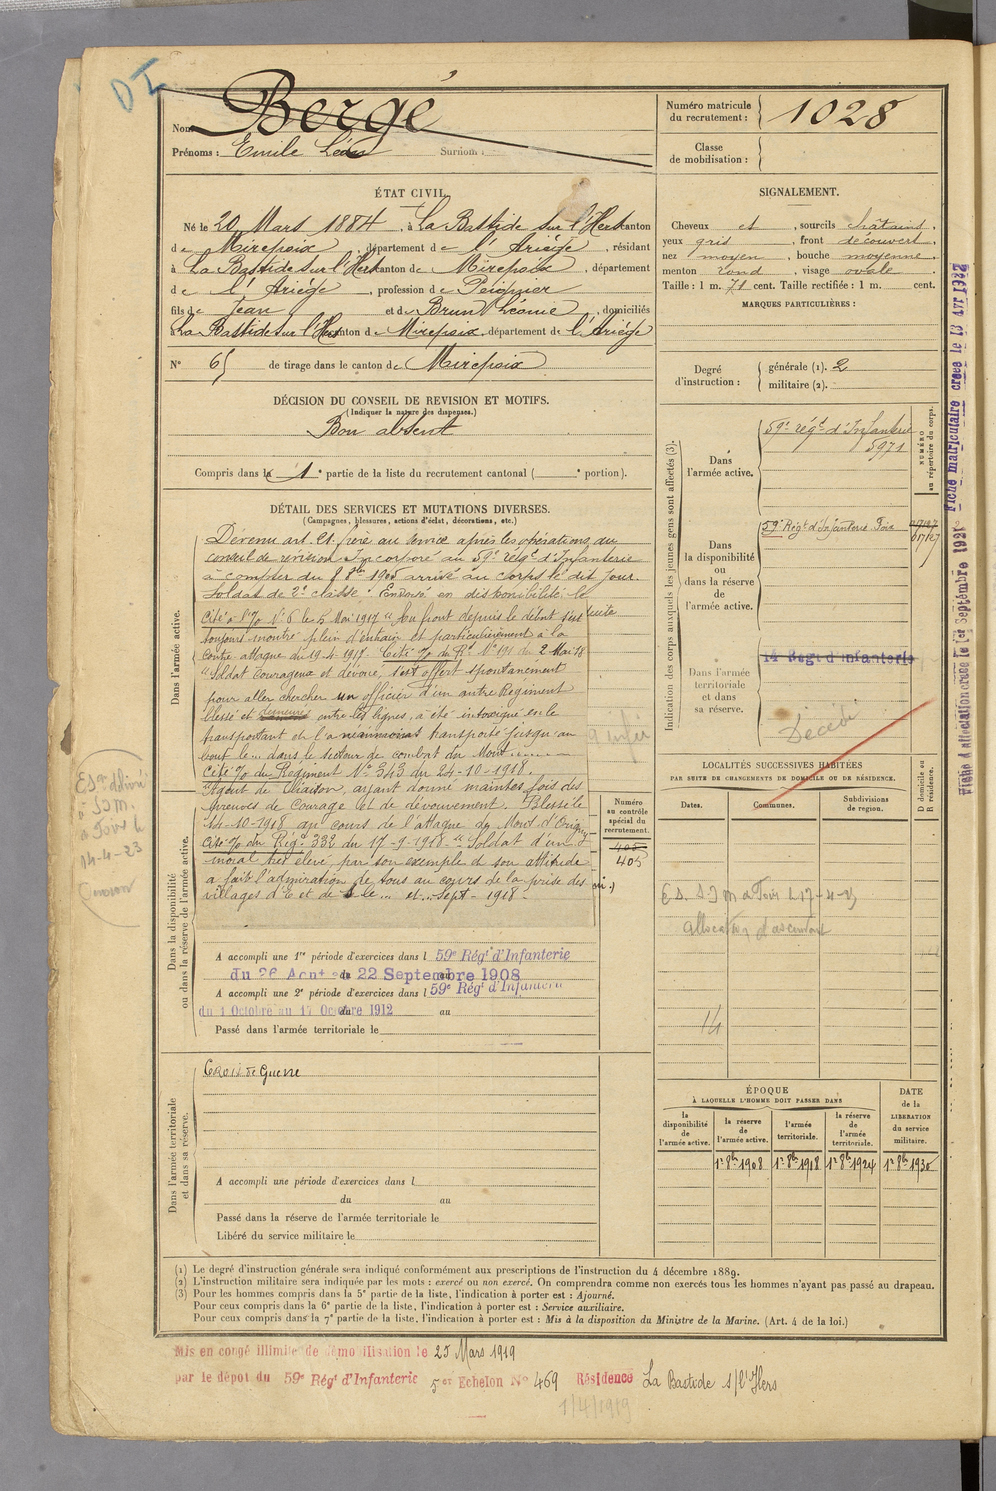 DI
Nom Bergé
Prénoms : Emile Léon Surnom :
Numéro matricule du recrutement : 1028
Classe de mobilisation :
ÉTAT CIVIL.
Né le 20 Mars 1884, à La Bastide sur l'Hers canton
de Mirepoix, département de l'Ariège, résidant
à La Bastide sur l'Hers canton de Mirepoix, département
de l'Ariège, profession de Peignier
fils de Jean et de Brun Léonie, domiciliés
à La Bastide sur l'Hers canton de Mirepoix, département de l'Ariège
N° 65 de tirage dans le canton de Mirepoix
SIGNALEMENT.
Cheveux et, sourcils châtains,
yeux gris, front découvert,
nez moyen, bouche moyenne,
menton rond, visage ovale.
Taille : 1 m. 71 cent. Taille rectifiée : 1 m. cent.
MARQUES PARTICULIÈRES :
Degré d'instruction : générale (1). 2
militaire (2).
DÉCISION DU CONSEIL DE REVISION ET MOTIFS.
(Indiquer la nature des dispenses.)
Bon absent
Compris dans la 1e partie de la liste du recrutement cantonal ( e portion).
DÉTAIL DES SERVICES ET MUTATIONS DIVERSES.
(Campagnes, blessures, actions d'éclat, décorations, etc.)
Dans l'armée active.
Devenu art. 21 frère au service après les opérations du
conseil de révision Incorporé au 59e régt d'Infanterie
à compter du 8 8bre 1905 arrivé au corps le dit jour
Soldat de 2e classe. Envoyé en disponibilité le
Cité à l'/o N° 6 le 5 Mai 1917 "Au front depuis le début s'est
suite
toujours montré plein d'entrain et particulièrement à la
contre attaque du 19-4-1917. Cité /o du Rt N° 191 du 2 Mai 18
"Soldat courageux et dévoué, s'est offert spontanément
pour aller chercher un officier d'un autre Régiment
blessé et demeuré entre les lignes, a été intoxiqué en le
transportant et l'a néanmoins transporté jusqu'au
bout le... dans le secteur de combat du Mont......
Cité /o du Régiment N° 343 du 24-10-1918.
"Agent de liaison, ayant donné maintes fois des
preuves de courage et de dévouement. Blessé le
14-10-1918 au cours de l'attaque du Mont d'Origny
Cité /o du Régt 332 du 17-9-1918 "Soldat d'un
moral très élevé, par son exemple et son attitude
a fait l'admiration de tous au cours de la prise des
villages d'E et de L le... et... Sept- 1918-
Dans la disponibilité ou dans la réserve de l'armée active.
Numéro au contrôle spécial du recrutement.
405
405
A accompli une 1re période d'exercices dans l 59e Régt d'Infanterie
du 26 Aout au 22 Septembre 1908
A accompli une 2e période d'exercices dans l 59e Régt d'Infanterie
du 1 Octobre au 17 Octobre 1912 au
Passé dans l'armée territoriale le
Dans l'armée territoriale et dans sa réserve.
Croix de Guerre
A accompli une période d'exercices dans l
du au
Passé dans la réserve de l'armée territoriale le
Libéré du service militaire le
Indication des corps auxquels les jeunes gens sont affectés (3).
NUMÉRO au répertoire du corps.
Dans l'armée active.
59e régt d'Infanterie
5971
Dans la disponibilité ou dans la réserve de l'armée active.
59e Régt d'Infanterie Foix
Dans l'armée territoriale et dans sa réserve.
14 Régt d'Infanterie
Décédé
LOCALITÉS SUCCESSIVES HABITÉES
PAR SUITE DE CHANGEMENTS DE DOMICILE OU DE RÉSIDENCE.
Dates. Communes. Subdivisions de région. D domicile ou R résidence.
14
ÉPOQUE
À LAQUELLE L'HOMME DOIT PASSER DANS
DATE de la LIBÉRATION du service militaire.
la disponibilité de l'armée active. la réserve de l'armée active. l'armée territoriale. la réserve de l'armée territoriale.
1er 8bre 1908 1er 8bre 1918 1er 8bre 1924 1er 8bre 1930
(1) Le degré d'instruction générale sera indiqué conformément aux prescriptions de l'instruction du 4 décembre 1889.
(2) L'instruction militaire sera indiquée par les mots : exercé ou non exercé. On comprendra comme non exercés tous les hommes n'ayant pas passé au drapeau.
(3) Pour les hommes compris dans la 5e partie de la liste, l'indication à porter est : Ajourné.
Pour ceux compris dans la 6e partie de la liste, l'indication à porter est : Service auxiliaire.
Pour ceux compris dans la 7e partie de la liste, l'indication à porter est : Mis à la disposition du Ministre de la Marine. (Art. 4 de la loi.)
Mis en congé illimité de démobilisation le 25 Mars 1919
par le dépôt du 59e Régt d'Infanterie 5er Echelon N° 469 Résidence La Bastide s/l'Hers
1/4/1919
Fiche matriculaire créée le 13 AVR 1937
Fiche d'affectation créée le 1er Septembre 1931